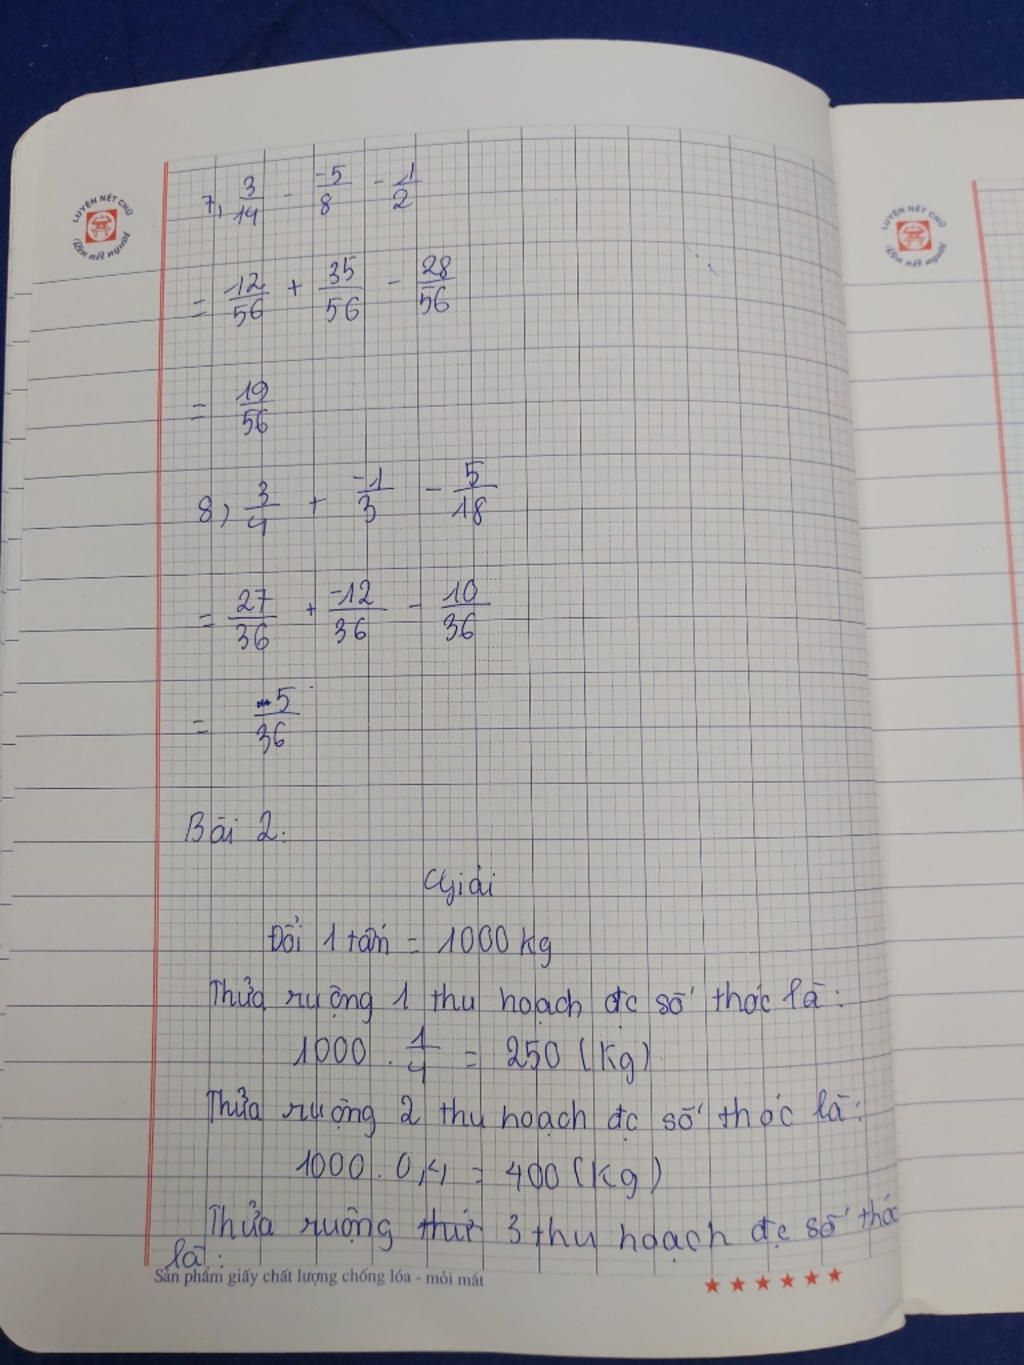 LUYỆN NÉT CHỮ
Rèn nết người
LUYỆN NÉT CHỮ
Rèn nết người
7, 3/14 - -5/8 - 1/2
= 12/56 + 35/56 - 28/56
= 19/56
8, 3/4 + -1/3 - 5/18
= 27/36 + -12/36 - 10/36
= -5/36
Bài 2:
Giải
Đổi 1 tấn = 1000 kg
Thửa ruộng 1 thu hoạch đc số thóc là:
1000 . 1/4 = 250 (Kg)
Thửa ruộng 2 thu hoạch đc số thóc là:
1000 . 0,4 = 400 (Kg)
Thửa ruộng thứ 3 thu hoạch đc số thóc
là:
Sản phẩm giấy chất lượng chống lóa - mỏi mắt